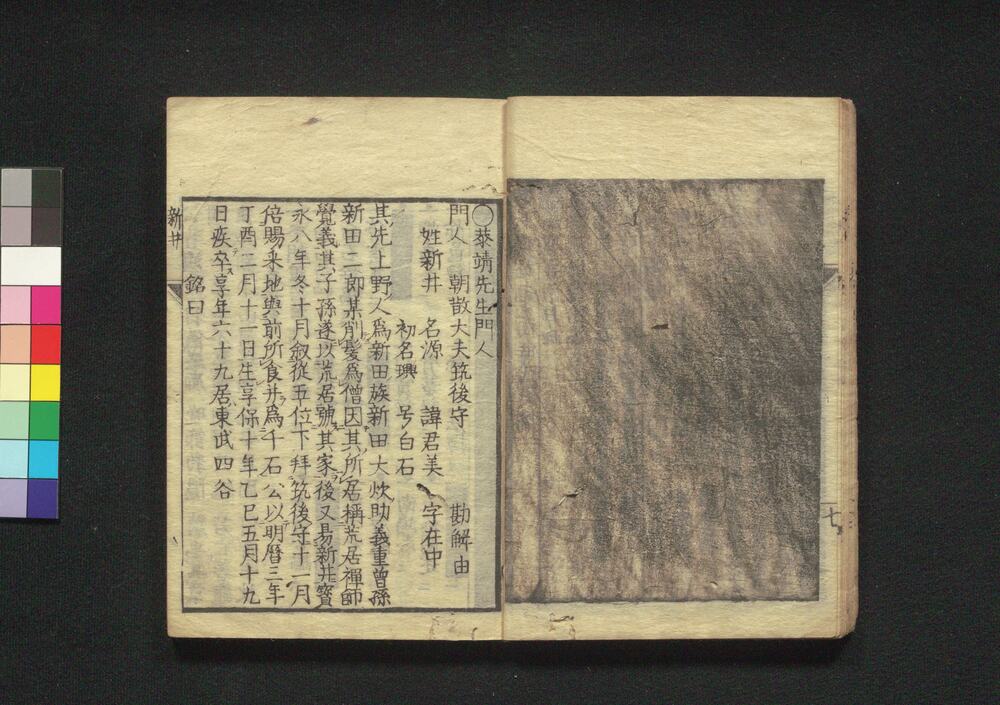 〇恭靖先生門人
門人　朝散大夫筑後守　　勘解由
姓新井　名源　諱君美　字在中
初名璵　号白石
其先上野人爲新田族新田大炊助義重曾孫
新田二郎某削髮爲僧因其所居稱荒居禪師
覺義其子孫遂以荒居號其家後又易新井寳
永八年冬十月敘從五位下拜筑後守十一月
倍賜釆地與前所食并爲千石公以明暦三年
丁酉二月十一日生享保十年乙巳五月十九
日疾卒享年六十九居東武四谷
銘曰
新井
七